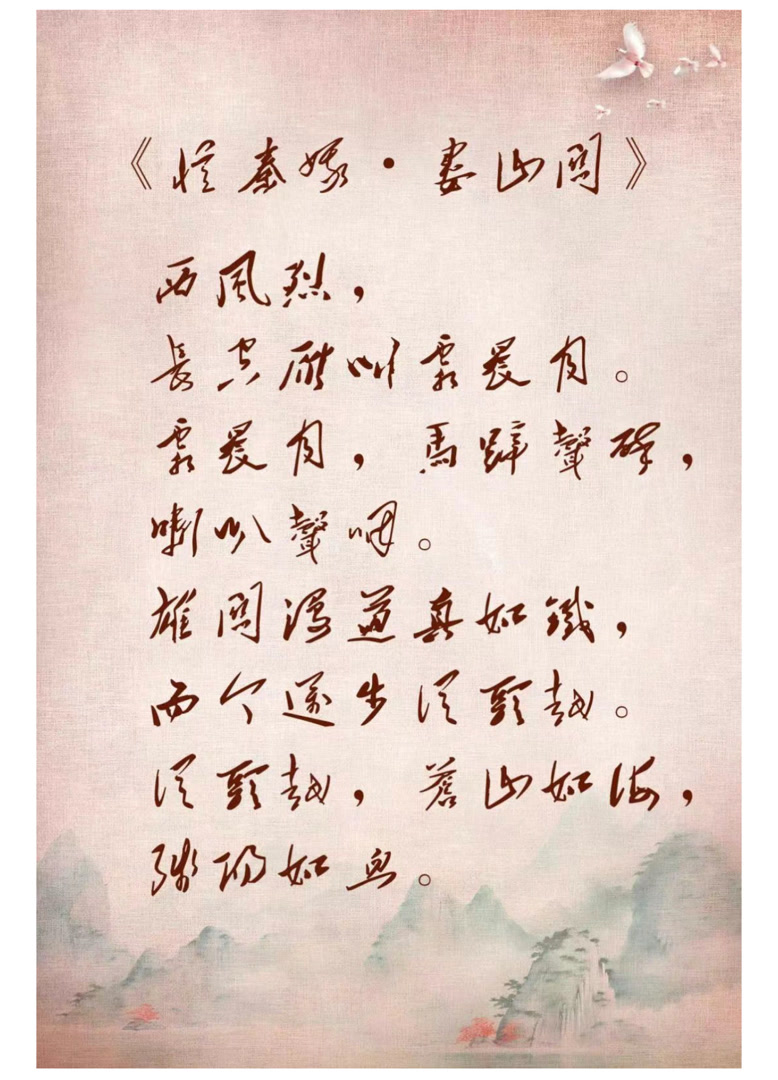 《憶秦娥·婁山關》
西風烈，
長空雁叫霜晨月。
霜晨月，馬蹄聲碎，
喇叭聲咽。
雄關漫道真如鐵，
而今邁步從頭越。
從頭越，蒼山如海，
殘陽如血。